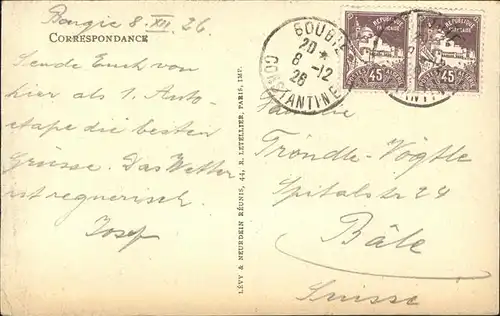 Bougie 8. XII. 26
CORRESPONDANCE
Sende Euch von
hier als 1. Auto-
etape die besten
Grüsse. Das Wetter
ist regnerisch.
Josef
LÉVY & NEURDEIN RÉUNIS, 44, R. LETELLIER, PARIS, IMP.
BOUGIE
20 *
8 -12
26
CONSTANTINE
RÉPUBLIQUE
FRANÇAISE
45
RÉPUBLIQUE
FRANÇAISE
45
Familie
Tröndle-Vögtle
Spitalstr 24
Bâle
Suisse